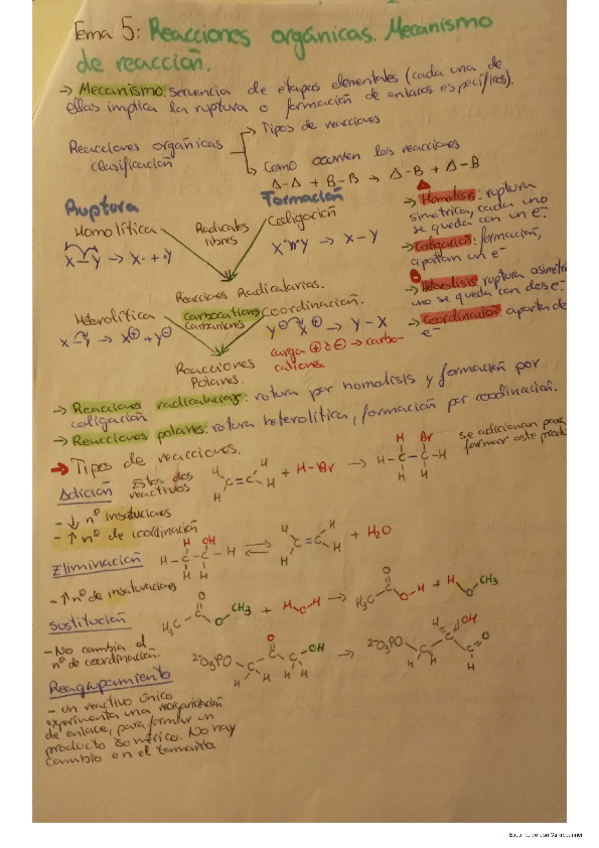 Tema 5: Reacciones orgánicas. Mecanismo
de reacción.
→ Mecanismo: secuencia de etapas elementales (cada una de
ellas implica la ruptura o formación de enlaces específicos).
Reacciones orgánicas
clasificación
→ Tipos de reacciones
→ Como ocurren las reacciones
A-A + B-B → A-B + A-B
Ruptura
Formación
Homolítica
Radicales
libres
Coligación
X-Y → X· + ·Y
X Y → X-Y
→ Homolisis: ruptura
simetrica, cada uno
se queda con un e⁻
→ Coligación: formación,
aportan un e⁻
→ Heterolisis: ruptura asimetri
uno se queda con dos e⁻
→ Coordinación: aporta de
e⁻
Reacciones Radicalarias.
Heterolítica
carbocationes
carbaniones
Coordinación.
X-Y → X⊕ + Y⊖
Y⊖ X⊕ → Y-X
carga ⊕ o ⊖ → carbo-
cationes.
Reacciones
Polares.
→ Reacciones radicalarias: rotura por homolisis y formación por
coligación
→ Reacciones polares: rotura heterolítica, formación por coordinación.
→ Tipos de reacciones.
Adición
Estos dos
reactivos
H H C=C H H + H-Br → H Br H-C-C-H H H
se adicionan para
formar este produc
- ↓ nº insaturaciones
- ↑ nº de coordinación
Eliminación
H OH H-C-C-H H H ⇌ H H C=C H H + H₂O
- ↑ nº de insaturaciones
Sustitución
H₃C C O O CH₃ + H O H → H₃C C O O H + H O CH₃
- No cambia el
nº de coordinación.
Reagrupamiento
²⁻O₃PO C O C C OH H H H H → ²⁻O₃PO C C OH C O H H H H
- un reactivo único
experimenta una reorganización
de enlace, para formar un
producto isomérico. No hay
cambio en el tamaño.